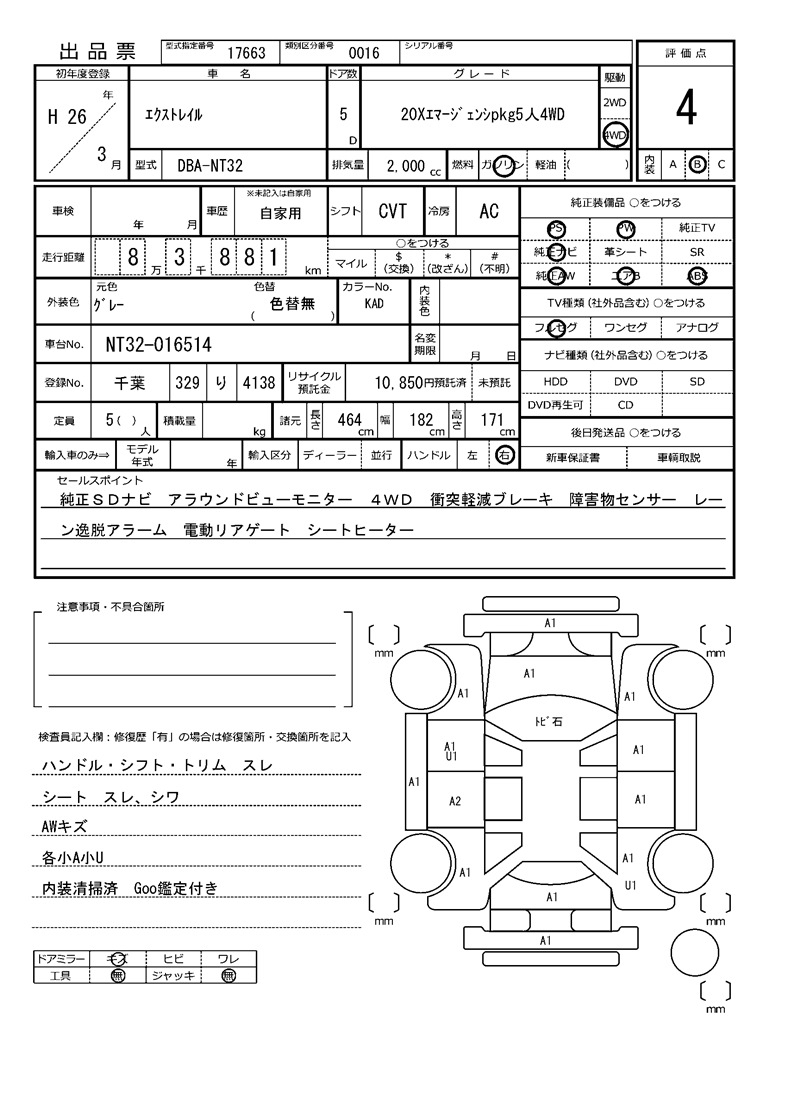 出品票 型式指定番号 17663 類別区分番号 0016 シリアル番号
評価点
4
内装 A B C
初年度登録 車名 ドア数 グレード 駆動
H 26 年 3 月
エクストレイル
5 D
20Xエマージェンシpkg5人4WD
2WD
4WD
型式 DBA-NT32 排気量 2,000 cc 燃料 ガソリン 軽油 ( )
車検 年 月 車歴 ※未記入は自家用 自家用 シフト CVT 冷房 AC
走行距離 8 万 3 千 8 8 1 km
○をつける
マイル $ (交換) * (改ざん) # (不明)
外装色 元色 グレー 色替 ( 色替無 ) カラーNo. KAD 内装色
車台No. NT32-016514 名変期限 月 日
登録No. 千葉 329 り 4138 リサイクル預託金 10,850円預託済 未預託
定員 5 ( ) 人 積載量 kg 諸元 長さ 464 cm 幅 182 cm 高さ 171 cm
輸入車のみ⇒ モデル年式 年 輸入区分 ディーラー 並行 ハンドル 左 右
純正装備品 ○をつける
PS PW 純正TV
純正ナビ 革シート SR
純正AW エアB ABS
TV種類(社外品含む)○をつける
フルセグ ワンセグ アナログ
ナビ種類(社外品含む)○をつける
HDD DVD SD
DVD再生可 CD
後日発送品 ○をつける
新車保証書 車輌取説
セールスポイント
純正SDナビ アラウンドビューモニター 4WD 衝突軽減ブレーキ 障害物センサー レー
ン逸脱アラーム 電動リアゲート シートヒーター
注意事項・不具合箇所
検査員記入欄:修復歴「有」の場合は修復箇所・交換箇所を記入
ハンドル・シフト・トリム スレ
シート スレ、シワ
AWキズ
各小A小U
内装清掃済 Goo鑑定付き
ドアミラー キズ ヒビ ワレ
工具 無 ジャッキ 無
A1
mm
mm
A1
A1
A1
トビ石
A1
U1
A1
A1
A2
A1
A1
A1
U1
A1
A1
mm
mm
A1
mm